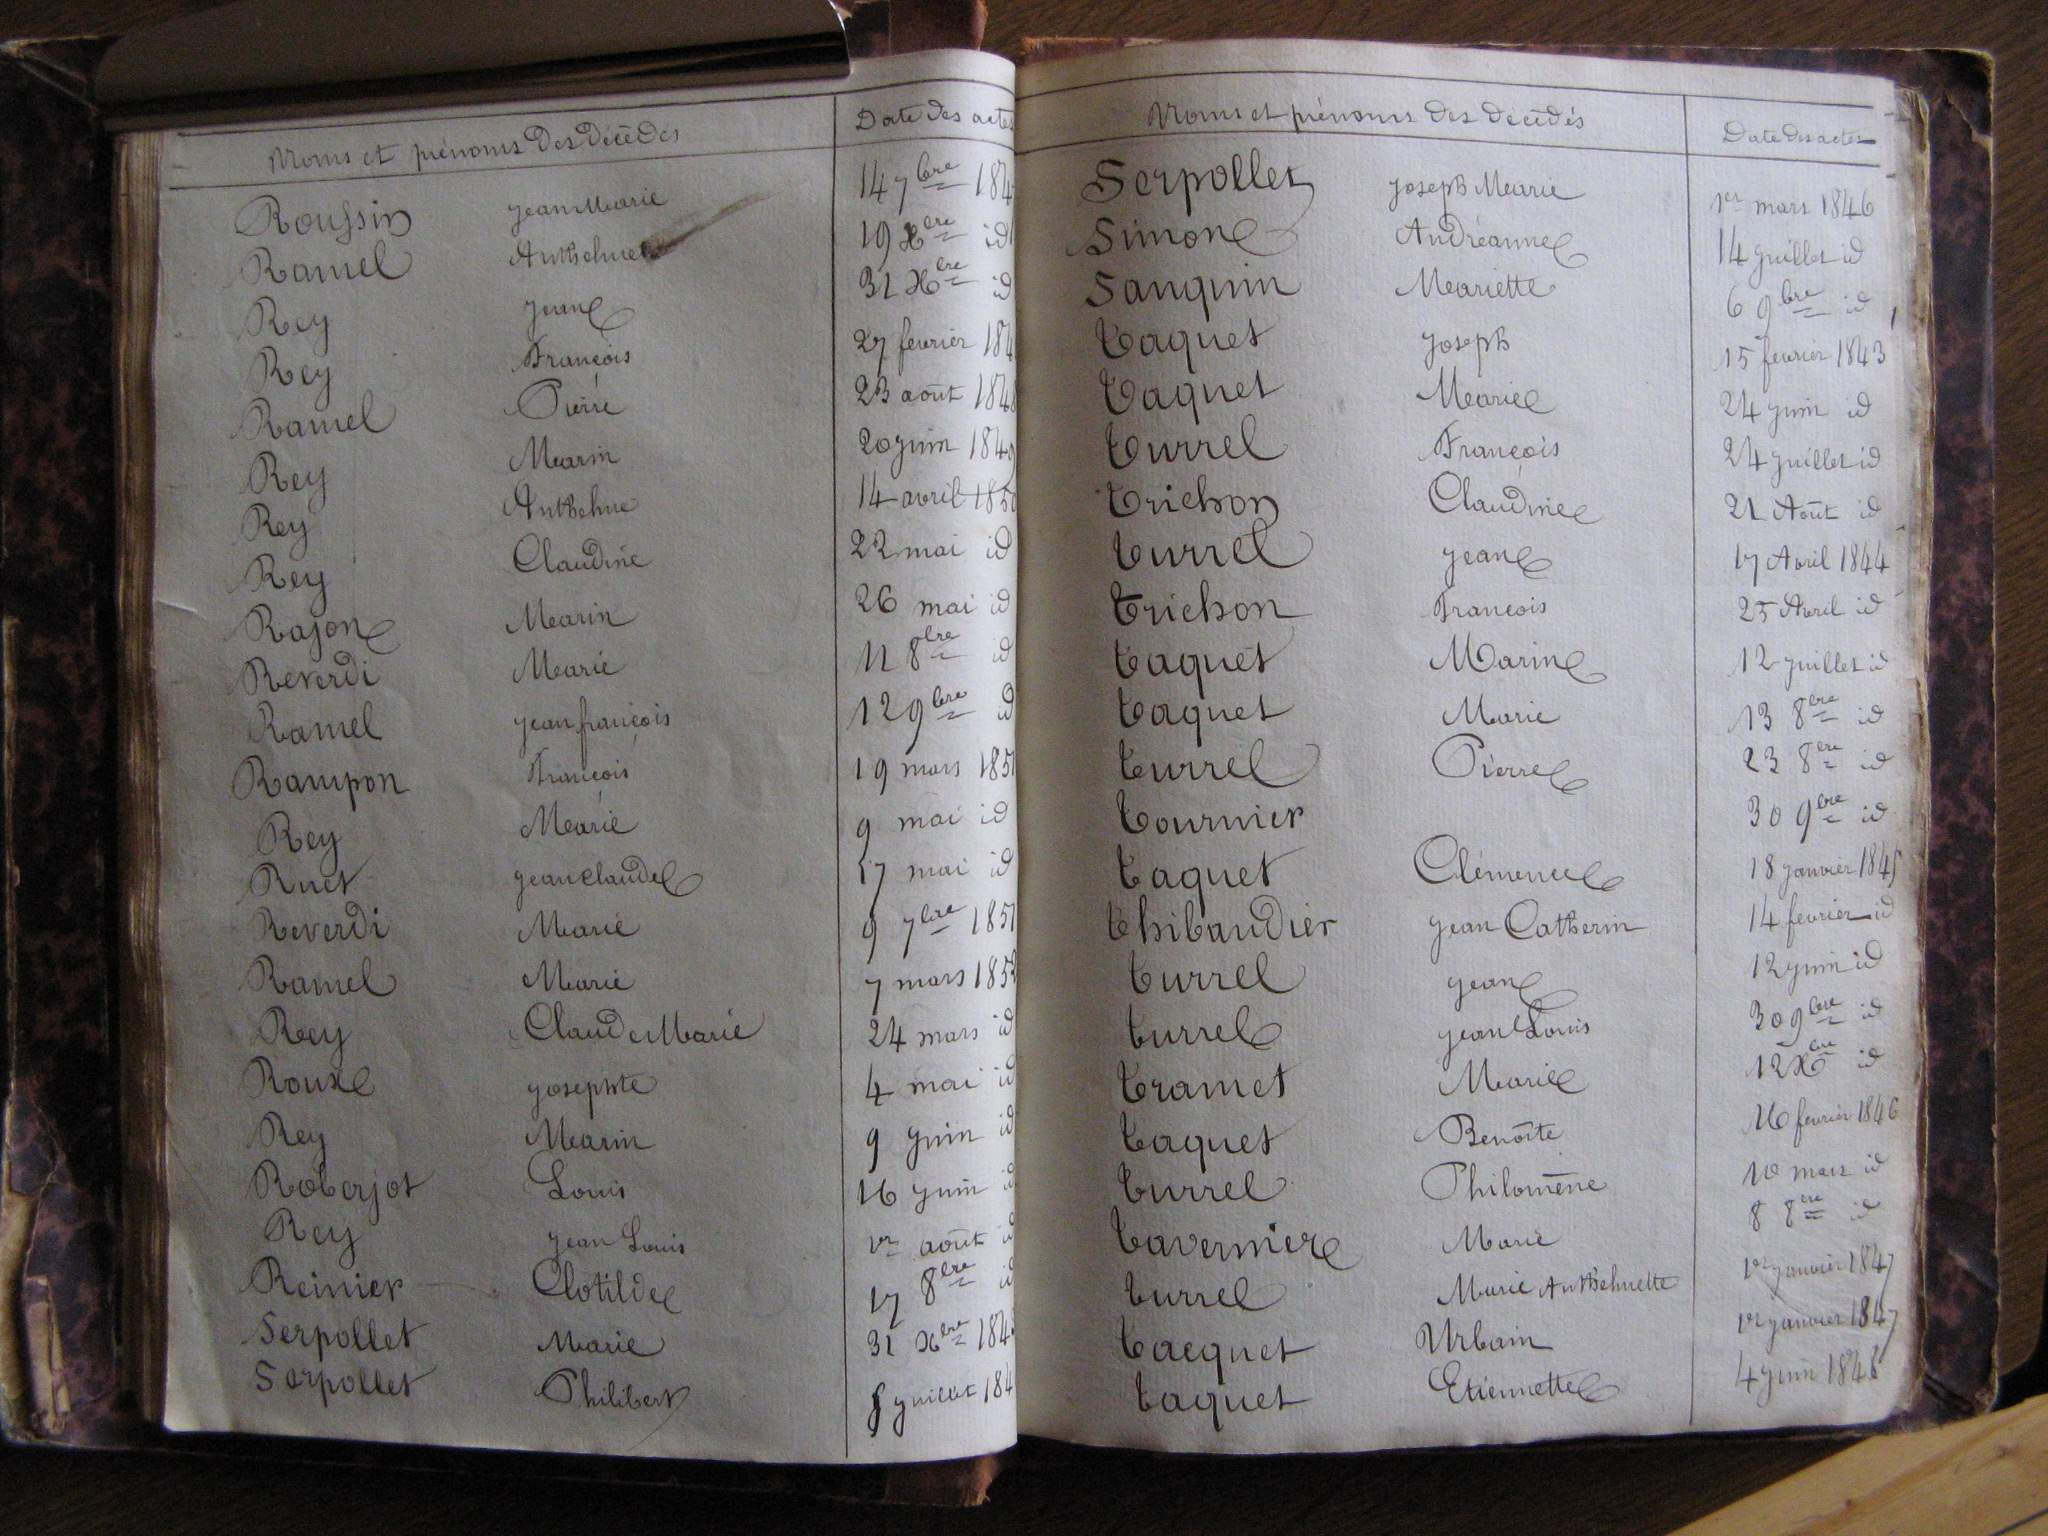 Noms et prénoms des décédés Date des actes
Roussin jean Marie 14 7bre
Ramel Anthelme 19 Xbre id
Rey jean 31 Xbre id
Rey François 27 fevrier
Ramel Pierre 23 août 1848
Rey Marin 20 juin 1849
Rey Anthelme 14 avril 1850
Rey Claudine 22 mai id
Rajon Marin 26 mai id
Reverdi Marie 11 8bre id
Ramel jean françois 12 9bre id
Rampon François 19 mars 1851
Rey Marie 9 mai id
Ruet jean claude 17 mai id
Reverdi Marie 9 7bre 1851
Ramel Marie 7 mars 1852
Rey Claude Marie 24 mars id
Roux josephte 4 mai id
Rey Marin 9 juin id
Roberjot Louis 16 juin id
Rey jean Louis 1er août id
Reinier Clotilde 17 8bre id
Serpollet Marie 31 Xbre
Serpollet Philibert juillet
Noms et prénoms des décédés Date des actes
Serpollet joseph Marie 1er mars 1846
Simon Andréanne 14 juillet id
Sanquin Mariette 6 9bre id
Taquet joseph 15 fevrier 1843
Taquet Marie 24 juin id
Turrel François 24 juillet id
Trichon Claudine 21 Août id
Turrel jean 17 Avril 1844
Trichon francois 25 Avril id
Taquet Marin 12 juillet id
Taquet Marie 13 8bre id
Turrel Pierre 23 8bre id
Tournier 30 9bre id
Taquet Clémence 18 janvier 1845
Thibaudier jean Catherin 14 fevrier id
Turrel jean 12 juin id
turrel jean Louis 30 9bre id
Tramet Marie 12 Xbre id
Taquet Benoîte 16 fevrier 1846
Turrel Philomène 10 mars id
Tavernier Marie 8 8bre id
Turrel Marie Anthelmette 1er janvier 1847
Tacquet Urbain 1er janvier 1847
Taquet Etiennette 4 juin 1848